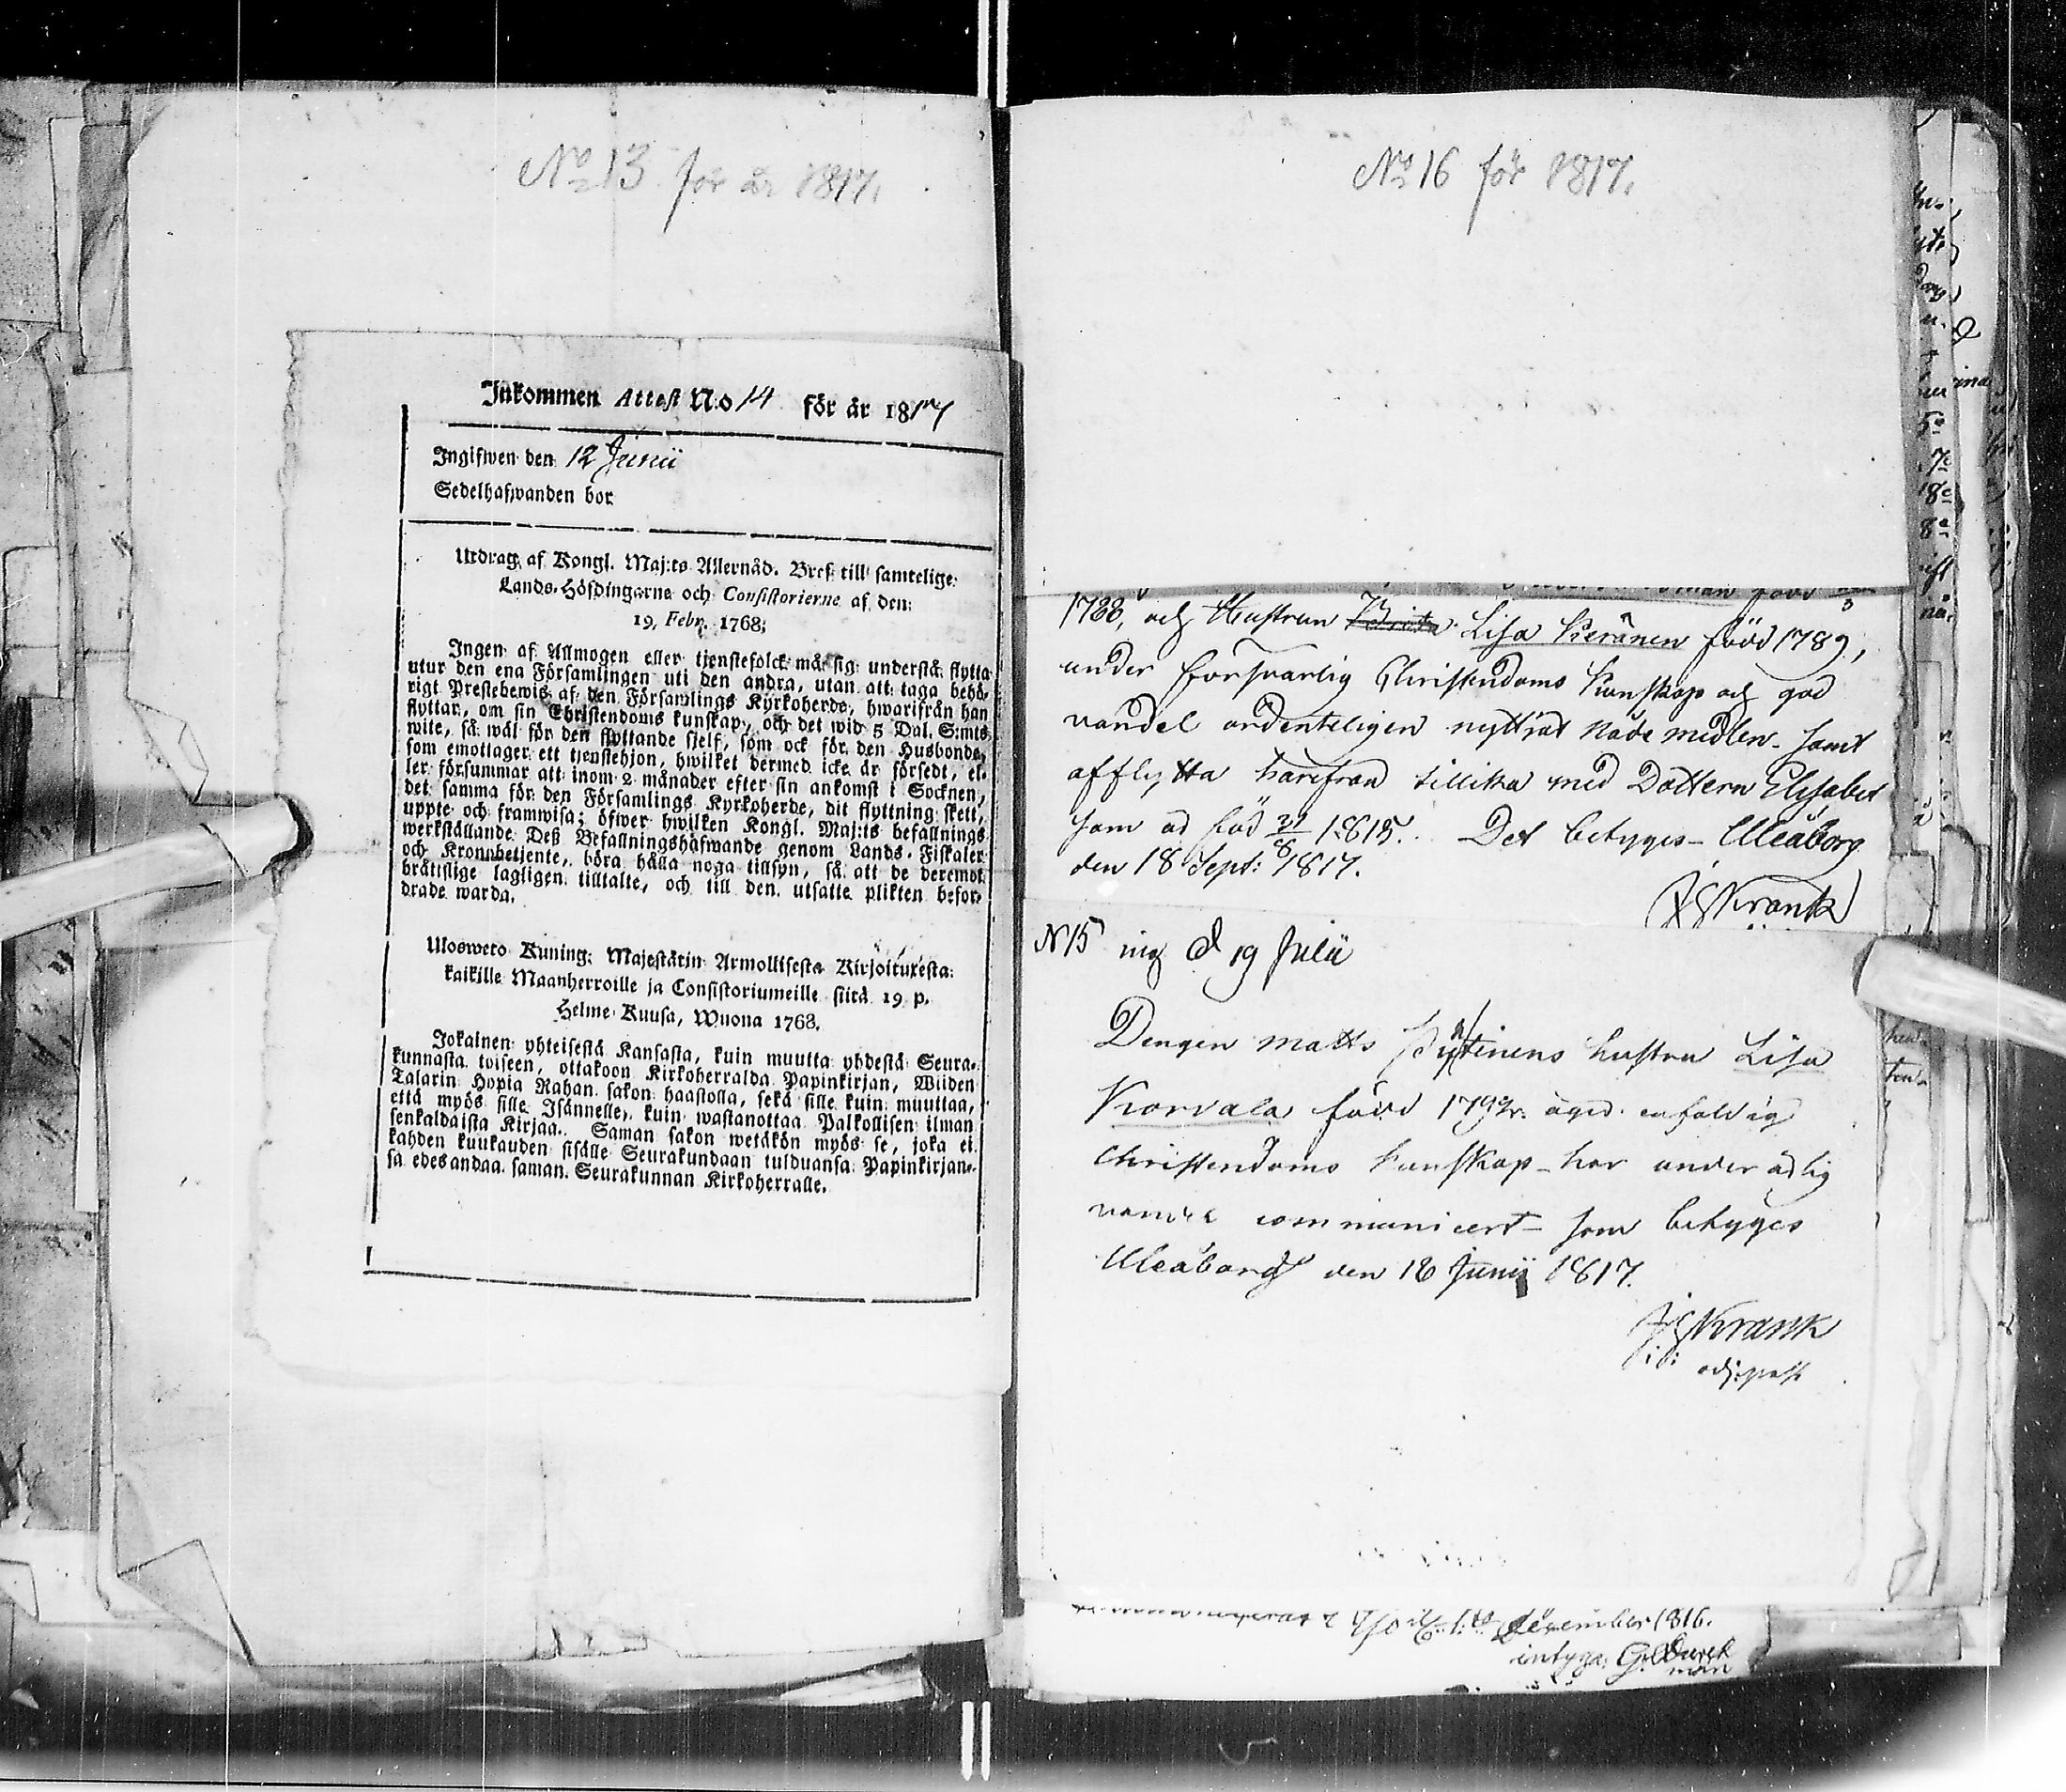 No 13 för år 1817.
Inkommen Attest N:o 14 för år 1817
Ingifwen den 12 Junii
Sedelhafwanden bor
Utdrag af Kongl. Maj:ts Allernåd. Bref till samtelige
Lands-Höfdingarne och Consistorierne af den
19, Febr. 1768;
Ingen af Allmogen eller tjenstefolck må sig understå flytta
utur den ena Församlingen uti den andra, utan att taga behö-
rigt Prestebewis af den Församlings Kyrkoherde, hwarifrån han
flyttar, om sin Christendoms kunskap, och det wid 5 Dal. S:mts
wite, så wäl för den flyttande sjelf, som ock för den Husbonde,
som emottager ett tjenstehjon, hwilket dermed icke är försedt, el-
ler försummar att inom 2 månader efter sin ankomst i Socknen,
det samma för den Församlings Kyrkoherde, dit flyttning skett,
uppte och framwisa; öfwer hwilken Kongl. Maj:ts befallnings
werkställande Deß Befallningshafwande genom Lands-Fiskaler
och Kronobetjente, böra hålla noga tillsyn, så att de deremot
brätislige lagligen tilltalte, och till den utsatte plikten befor-
drade warda.
Ulosweto Kuning: Majestätin Armollisesta Kirjoituxesta
kaikille Maanherroille ja Consistoriumeille siitä 19 p.
Helme-Kuusa, Wuona 1768.
Jokainen yhteisestä Kansasta, kuin muutta yhdestä Seura-
kunnasta toiseen, ottakoon Kirkoherralda Papinkirjan, Wiiden
Talarin Hopia Rahan sakon haastolla, sekä sille kuin muuttaa,
että myös sille Isännelle, kuin wastanottaa Palkollisen ilman
senkaldaista Kirjaa. Saman sakon wetäkön myös se, joka ei
kahden kuukauden sisälle Seurakundaan tulduansa Papinkirjan-
sa edesandaa saman Seurakunnan Kirkoherralle.
No 16 för 1817.
1788, och Hustrun Brita Lisa Keränen född 1789,
under försvarlig Christendoms kunskap och god
vandel ordenteligen nyttjat Nåde medlen samt
afflytta härifrån tillika med Dottern Elisabet
som är född 21/8 1815. Det betyges Uleåborg
den 18 Sept: 1817.
JGKrank
N 15 ing d 19 Julii
Drengen Matts hustru Lisa
Korvala född 1792 äger enfaldig
Christendoms kunskap har under ädlig
vandel communicert som betyges
Uleåborg den 18 Junii 1817.
JGKrank
adj: past
December 1816.
intygar